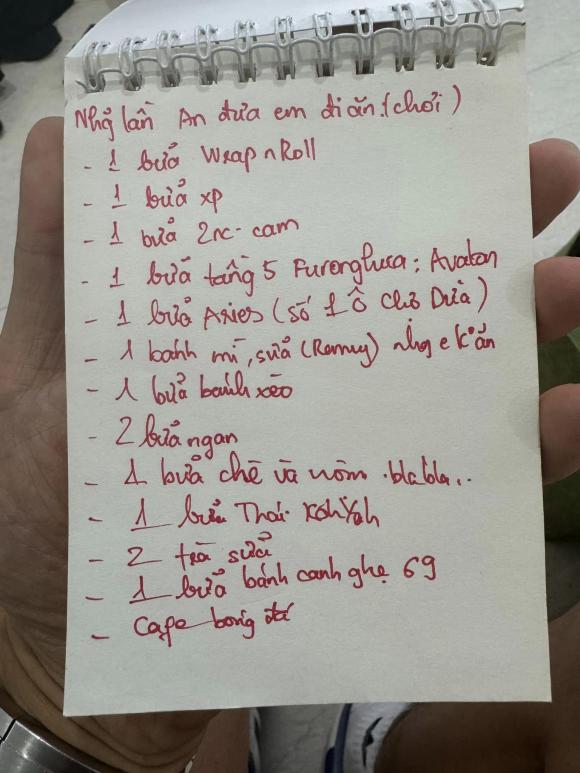 Nhg lần An đưa em đi ăn.(chơi)
- 1 bữa Wrap n Roll
- 1 bữa xp
- 1 bữa 2nc- cam
- 1 bữa tầng 5 : Avatar
- 1 bữa Axies (số 1 Ô Chợ Dừa)
- 1 bánh mì, sữa (Remuy) nhg e k ăn
- 1 bữa bánh xèo
- 2 bữa ngan
- 1 bữa chè và nộm .blabla..
- 1 bữa Thái KohYah
- 2 trà sữa
- 1 bữa bánh canh ghẹ 69
- Cafe bóng đá